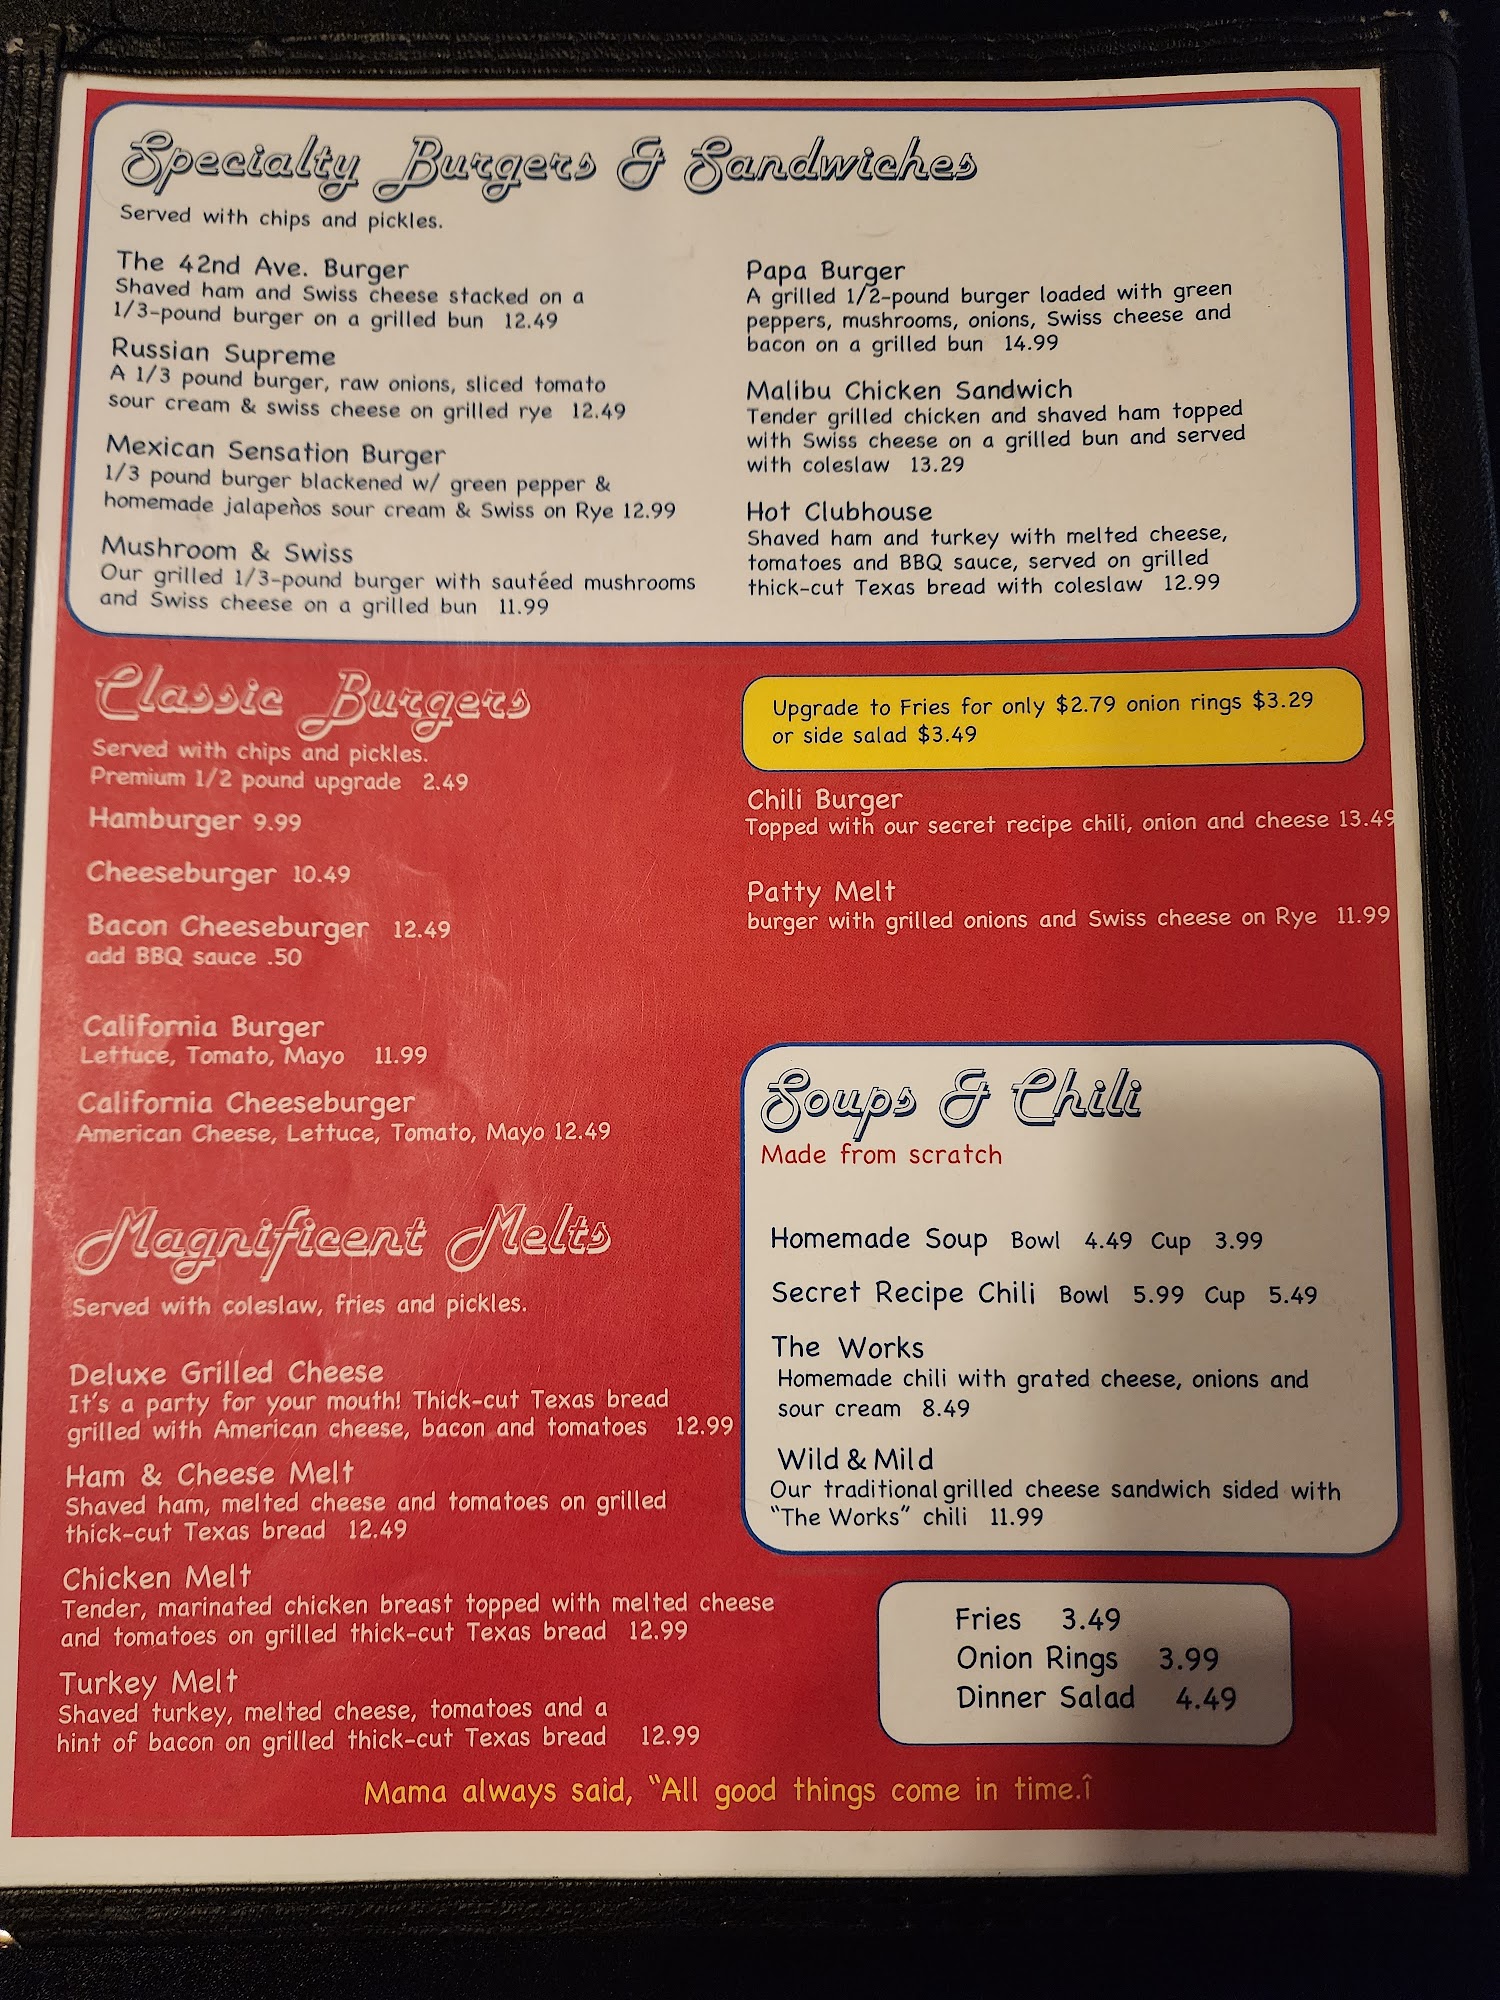 Specialty Burgers & Sandwiches
Served with chips and pickles.
The 42nd Ave. Burger
Shaved ham and Swiss cheese stacked on a
1/3-pound burger on a grilled bun 12.49
Russian Supreme
A 1/3 pound burger, raw onions, sliced tomato
sour cream & swiss cheese on grilled rye 12.49
Mexican Sensation Burger
1/3 pound burger blackened w/ green pepper &
homemade jalapeños sour cream & Swiss on Rye 12.99
Mushroom & Swiss
Our grilled 1/3-pound burger with sautéed mushrooms
and Swiss cheese on a grilled bun 11.99
Papa Burger
A grilled 1/2-pound burger loaded with green
peppers, mushrooms, onions, Swiss cheese and
bacon on a grilled bun 14.99
Malibu Chicken Sandwich
Tender grilled chicken and shaved ham topped
with Swiss cheese on a grilled bun and served
with coleslaw 13.29
Hot Clubhouse
Shaved ham and turkey with melted cheese,
tomatoes and BBQ sauce, served on grilled
thick-cut Texas bread with coleslaw 12.99
Classic Burgers
Served with chips and pickles.
Premium 1/2 pound upgrade 2.49
Hamburger 9.99
Cheeseburger 10.49
Bacon Cheeseburger 12.49
add BBQ sauce .50
California Burger
Lettuce, Tomato, Mayo 11.99
California Cheeseburger
American Cheese, Lettuce, Tomato, Mayo 12.49
Upgrade to Fries for only $2.79 onion rings $3.29
or side salad $3.49
Chili Burger
Topped with our secret recipe chili, onion and cheese 13.49
Patty Melt
burger with grilled onions and Swiss cheese on Rye 11.99
Magnificent Melts
Served with coleslaw, fries and pickles.
Deluxe Grilled Cheese
It's a party for your mouth! Thick-cut Texas bread
grilled with American cheese, bacon and tomatoes 12.99
Ham & Cheese Melt
Shaved ham, melted cheese and tomatoes on grilled
thick-cut Texas bread 12.49
Chicken Melt
Tender, marinated chicken breast topped with melted cheese
and tomatoes on grilled thick-cut Texas bread 12.99
Turkey Melt
Shaved turkey, melted cheese, tomatoes and a
hint of bacon on grilled thick-cut Texas bread 12.99
Soups & Chili
Made from scratch
Homemade Soup Bowl 4.49 Cup 3.99
Secret Recipe Chili Bowl 5.99 Cup 5.49
The Works
Homemade chili with grated cheese, onions and
sour cream 8.49
Wild & Mild
Our traditional grilled cheese sandwich sided with
“The Works” chili 11.99
Fries 3.49
Onion Rings 3.99
Dinner Salad 4.49
Mama always said, “All good things come in time.î